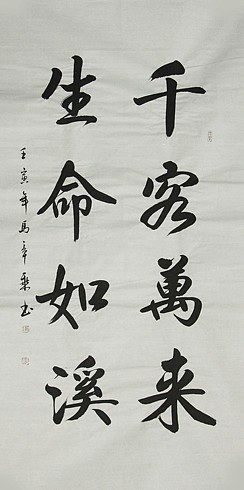 千客萬来
生命如溪
壬寅年馬章乘书